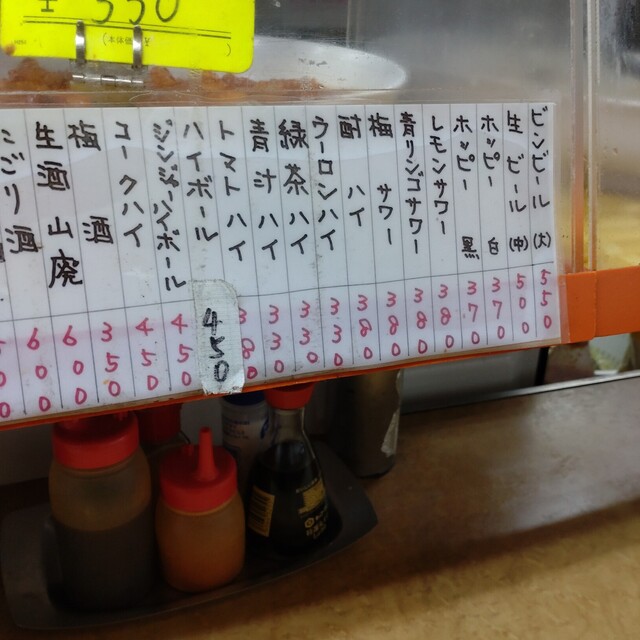 ¥ 550
ビンビール(大) 550
生ビール(中) 500
ホッピー 白 370
ホッピー 黒 370
レモンサワー 380
青リンゴサワー 380
梅サワー 380
酎ハイ 380
ウーロンハイ 330
緑茶ハイ 330
青汁ハイ 330
トマトハイ 380
ハイボール 450
ジンジャーハイボール 450
コークハイ 450
梅酒 350
生酒山廃 600
にごり酒 600